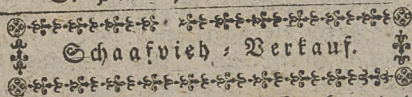 Schaafvieh = Verkauf.